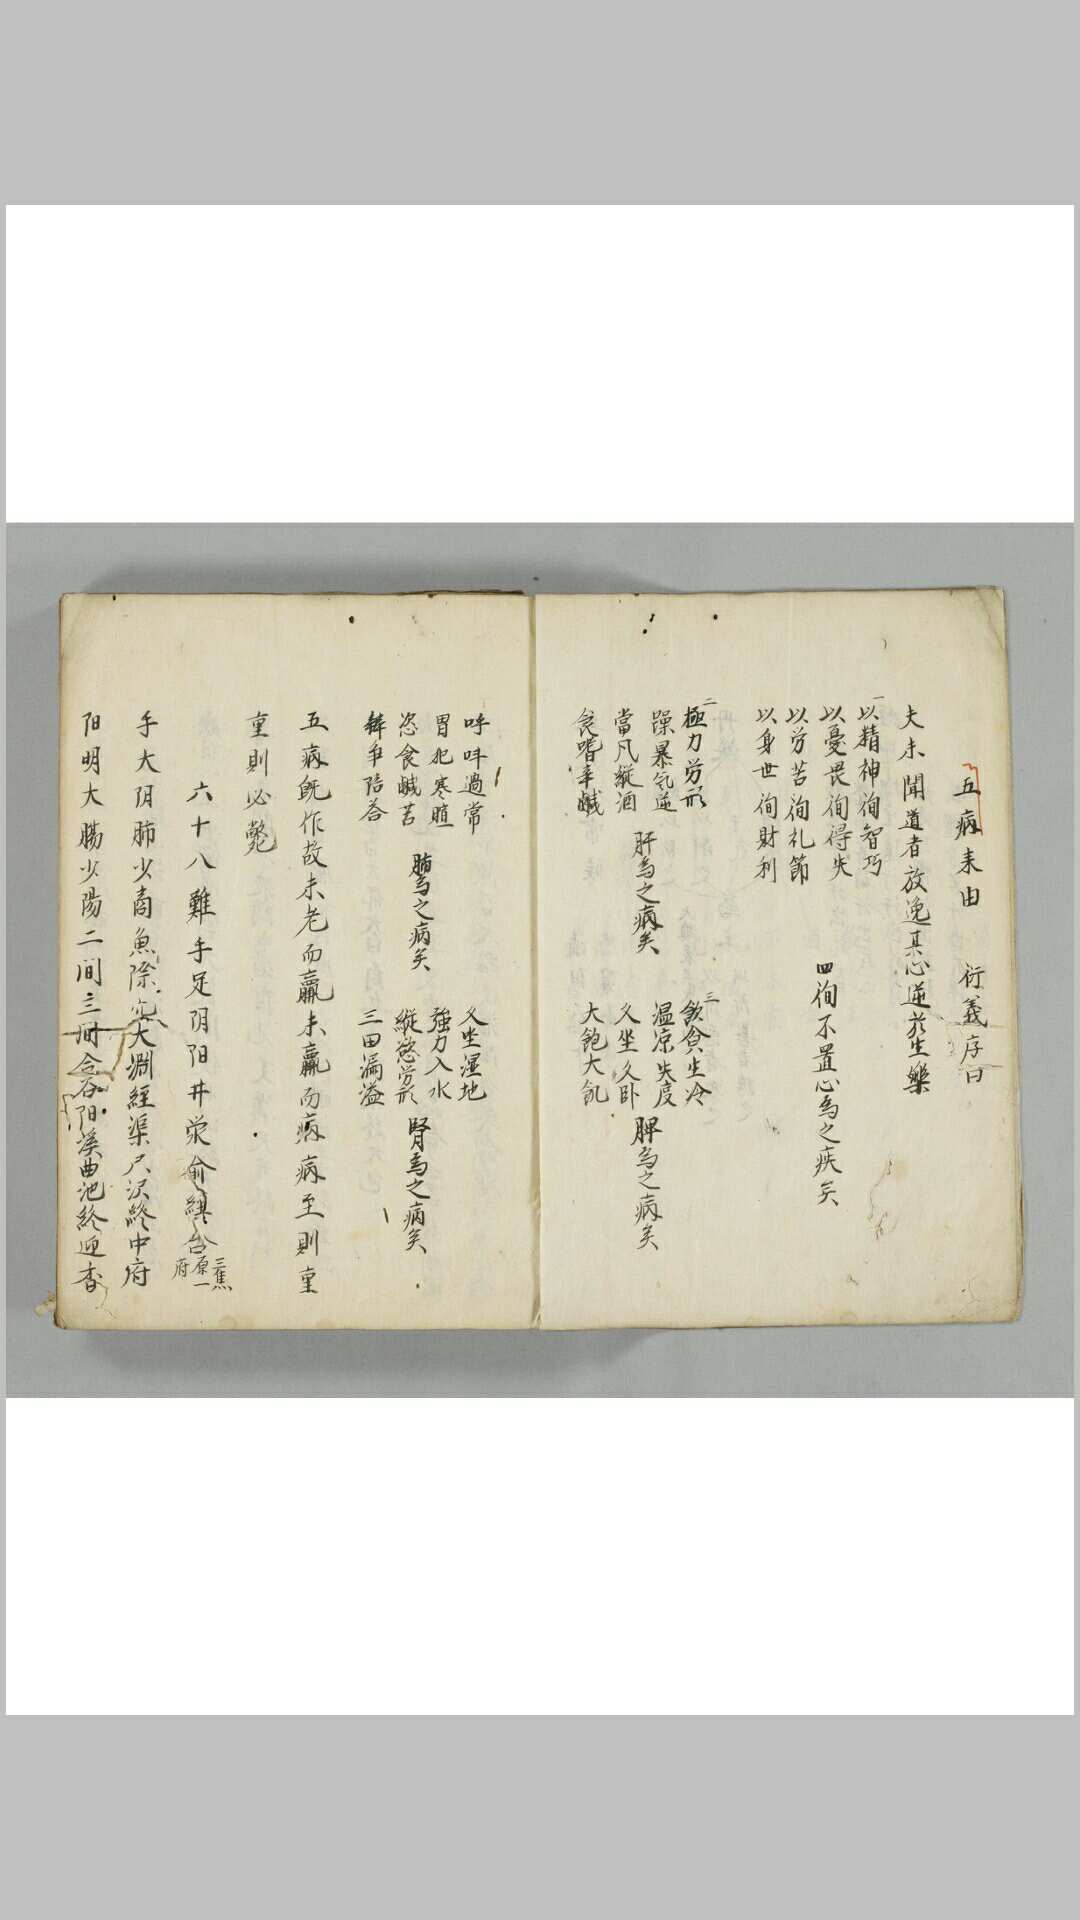 五病来由　衍義序曰
夫未聞道者放逸其心逆於生樂
一以精神徇智巧
以憂畏徇得失
以労苦徇礼節
以身世徇財利
四徇不置心為之疾矣
二極力労形
躁暴気逆
當凡縦酒
食嗜辛鹹
肝為之病矣
三飲食生冷
温凉失度
久坐久卧
大飽大飢
脾為之病矣
呼呌過常
冒犯寒暄
恣食鹹苦
肺為之病矣
久坐湿地
強力入水
縦慾労形
三田漏溢
腎為之病矣
五病既作故未老而羸未羸而病病至則重
重則必斃
六十八難手足阴阳井荥俞經合
三焦
原一
府
手大阴肺少商魚際大淵經渠尺沢終中府
阳明大腸少陽二间三间合谷阳溪曲池終迎香